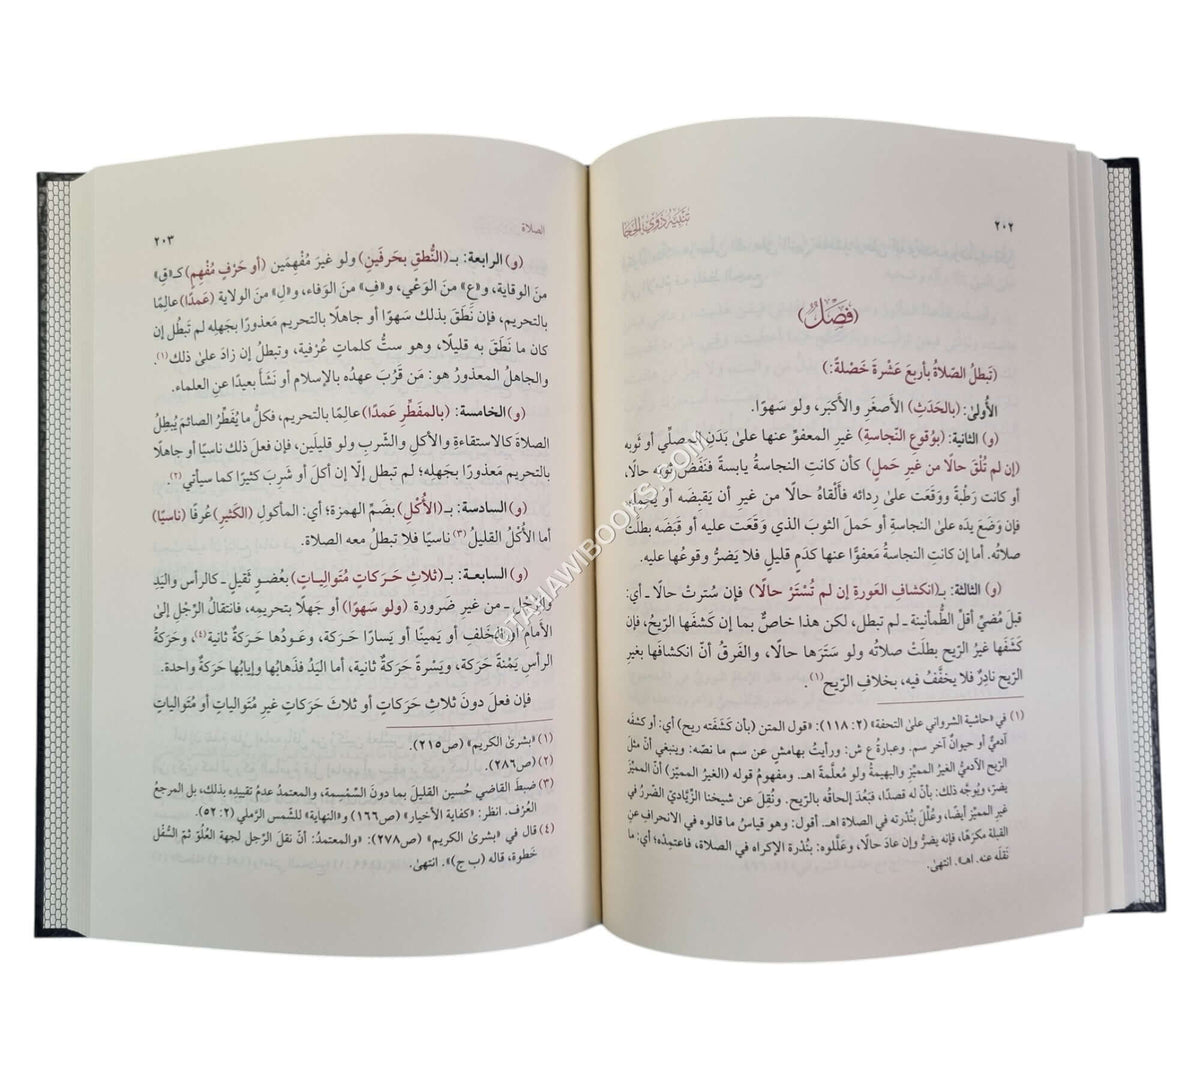 ٢٠٢
تنبيه ذوي الحجا
(فصلٌ)
(تَبطلُ الصّلاةُ بأربعَ عَشْرةَ خَصْلةً:)
الأُولىٰ: (بالحَدَثِ) الأَصغَر والأَكبَر، ولو سَهوًا.
(و) الثانية: (بوُقوعِ النّجاسةِ) غيرِ المعفوِّ عنها علىٰ بَدَنِ المصلِّي أو ثَوبه
(إن لم تُلْقَ حالًا من غيرِ حَملٍ) كأن كانتِ النجاسةُ يابسةً فنَفَضَ ثوبَه حالًا،
أو كانت رَطْبةً ووَقَعَت علىٰ رِدائه فألقاهُ حالًا من غيرِ أن يَقبِضَه أو يَحمِلَه،
فإن وَضَعَ يدَه علىٰ النجاسةِ أو حَملَ الثوبَ الذي وَقَعَت عليه أو قَبَضَه بطلَتْ
صلاتُه. أما إن كانتِ النجاسةُ مَعفوًّا عنها كدَمٍ قليلٍ فلا يَضرُّ وقوعُها عليه.
(و) الثالثة: بـ(انكشافِ العَورةِ إن لم تُسْتَرْ حالًا) فإن سُترتْ حالًا ـ أي:
قبلَ مُضيِّ أقلِّ الطُّمأنينة ـ لم تبطل، لكن هذا خاصٌّ بما إن كَشَفَها الرّيحُ، فإن
كَشَفَها غيرُ الرّيح بطلَتْ صلاتُه ولو سَتَرَها حالًا، والفَرقُ أنّ انكشافَها بغيرِ
الرّيح نادِرٌ فلا يخفَّفُ فيه، بخلافِ الرّيح(١).
(١) في «حاشية الشرواني علىٰ التحفة» (٢: ١١٨): «قول المتن (بأن كَشَفَته ريح) أي: أو كشَفَه
آدميٌّ أو حيوانٌ آخر سم. وعبارةُ ع ش: ورأيتُ بهامشٍ عن سم ما نصّه: وينبغي أنّ مثلَ
الرّيح الآدميُّ الغيرُ المميِّز والبهيمةُ ولو مُعلَّمةً اهـ. ومفهومُ قوله (الغيرُ المميّز) أنّ المميِّزَ
يضرّ، ويُوجَّه ذلك: بأنّ له قصدًا، فبَعُدَ إلحاقُه بالرّيح. ونُقِلَ عن شيخنا الزّياديّ الضّررُ في
غيرِ المميّز أيضًا، وعُلِّلَ بنُدْرتِه في الصّلاة اهـ. أقول: وهو قياسُ ما قالوه في الانحرافِ عنِ
القبلة مكرَهًا، فإنه يضرُّ وإن عادَ حالًا، وعَلَّلوه: بنُدْرةِ الإكراهِ في الصلاة، فاعتمِدْه؛ أي: ما
نَقلَه عنه. اهـ». انتهىٰ.
الصلاة
٢٠٣
(و) الرابعة: بـ(النُّطقِ بحَرفَينِ) ولو غيرَ مُفْهِمَين (أو حَرْفٍ مُفْهِمٍ) كـ«قِ»
منَ الوقاية، و«عِ» منَ الوَعْي، و«فِ» منَ الوَفاء، و«لِ» منَ الولاية (عَمدًا) عالِمًا
بالتحريم، فإن نَطَقَ بذلك سَهوًا أو جاهلًا بالتحريم مَعذورًا بجَهلِه لم تَبطُل إن
كان ما نَطَقَ به قليلًا، وهو ستُّ كلماتٍ عُرْفية، وتبطل إن زادَ علىٰ ذلك(١).
والجاهلُ المعذورُ هو: مَن قَرُبَ عهدُه بالإسلام أو نَشَأ بعيدًا عنِ العلماء.
(و) الخامسة: (بالمفَطِّرِ عَمدًا) عالِمًا بالتحريم، فكلُّ ما يُفَطِّرُ الصائمَ يُبطِلُ
الصلاةَ كالاستقاءةِ والأكلِ والشّربِ ولو قليلَين، فإن فعلَ ذلك ناسيًا أو جاهلًا
بالتحريم مَعذورًا بجهلِه؛ لم تبطل إلّا إن أكلَ أو شَرِبَ كثيرًا كما سيأتي(٢).
(و) السادسة: بـ(الأُكْلِ) بضَمِّ الهمزة؛ أي: المأكولِ (الكَثيرِ) عُرفًا (ناسيًا)
أما الأُكْلُ القليلُ(٣) ناسيًا فلا تبطلُ معه الصلاة.
(و) السابعة: بـ(ثلاثِ حَرَكاتٍ مُتَوالياتٍ) بعُضوٍ ثَقيلٍ ـ كالرأسِ واليَدِ
والرِّجْلِ ـ من غيرِ ضَرورة (ولو سَهوًا) أو جَهلًا بتحريمِه. فانتقالُ الرِّجْلِ إلىٰ
الأمامِ أو الخَلفِ أو يَمينًا أو يَسارًا حَركة، وعَودُها حَركةٌ ثانية(٤)، وحَركةُ
الرأسِ يَمْنةً حَركة، ويَسْرةً حَركةٌ ثانية، أما اليَدُ فذَهابُها وإيابُها حَركةٌ واحدة.
فإن فعلَ دونَ ثلاثِ حَرَكاتٍ أو ثلاثَ حَرَكاتٍ غيرِ مُتَوالياتٍ أو مُتَوالياتٍ
(١) «بشرىٰ الكريم» (ص٢١٥).
(٢) (ص٢٨٦).
(٣) ضبطَ القاضي حُسين القليلَ بما دونَ السِّمْسِمة، والمعتمدُ عدمُ تقييدِه بذلك، بل المرجعُ
العُرْف. انظر: «كفاية الأخيار» (ص١٦٦) و«النهاية» للشّمس الرَّملي (٢: ٥٢).
(٤) قال في «بشرىٰ الكريم» (ص٢٧٨): «والمعتمدُ: أنّ نقلَ الرِّجل لجهة العُلْوّ ثمّ السُّفْل
خَطوة، قاله (ب ج)». انتهىٰ.
©TAHAWIBOOKS.COM